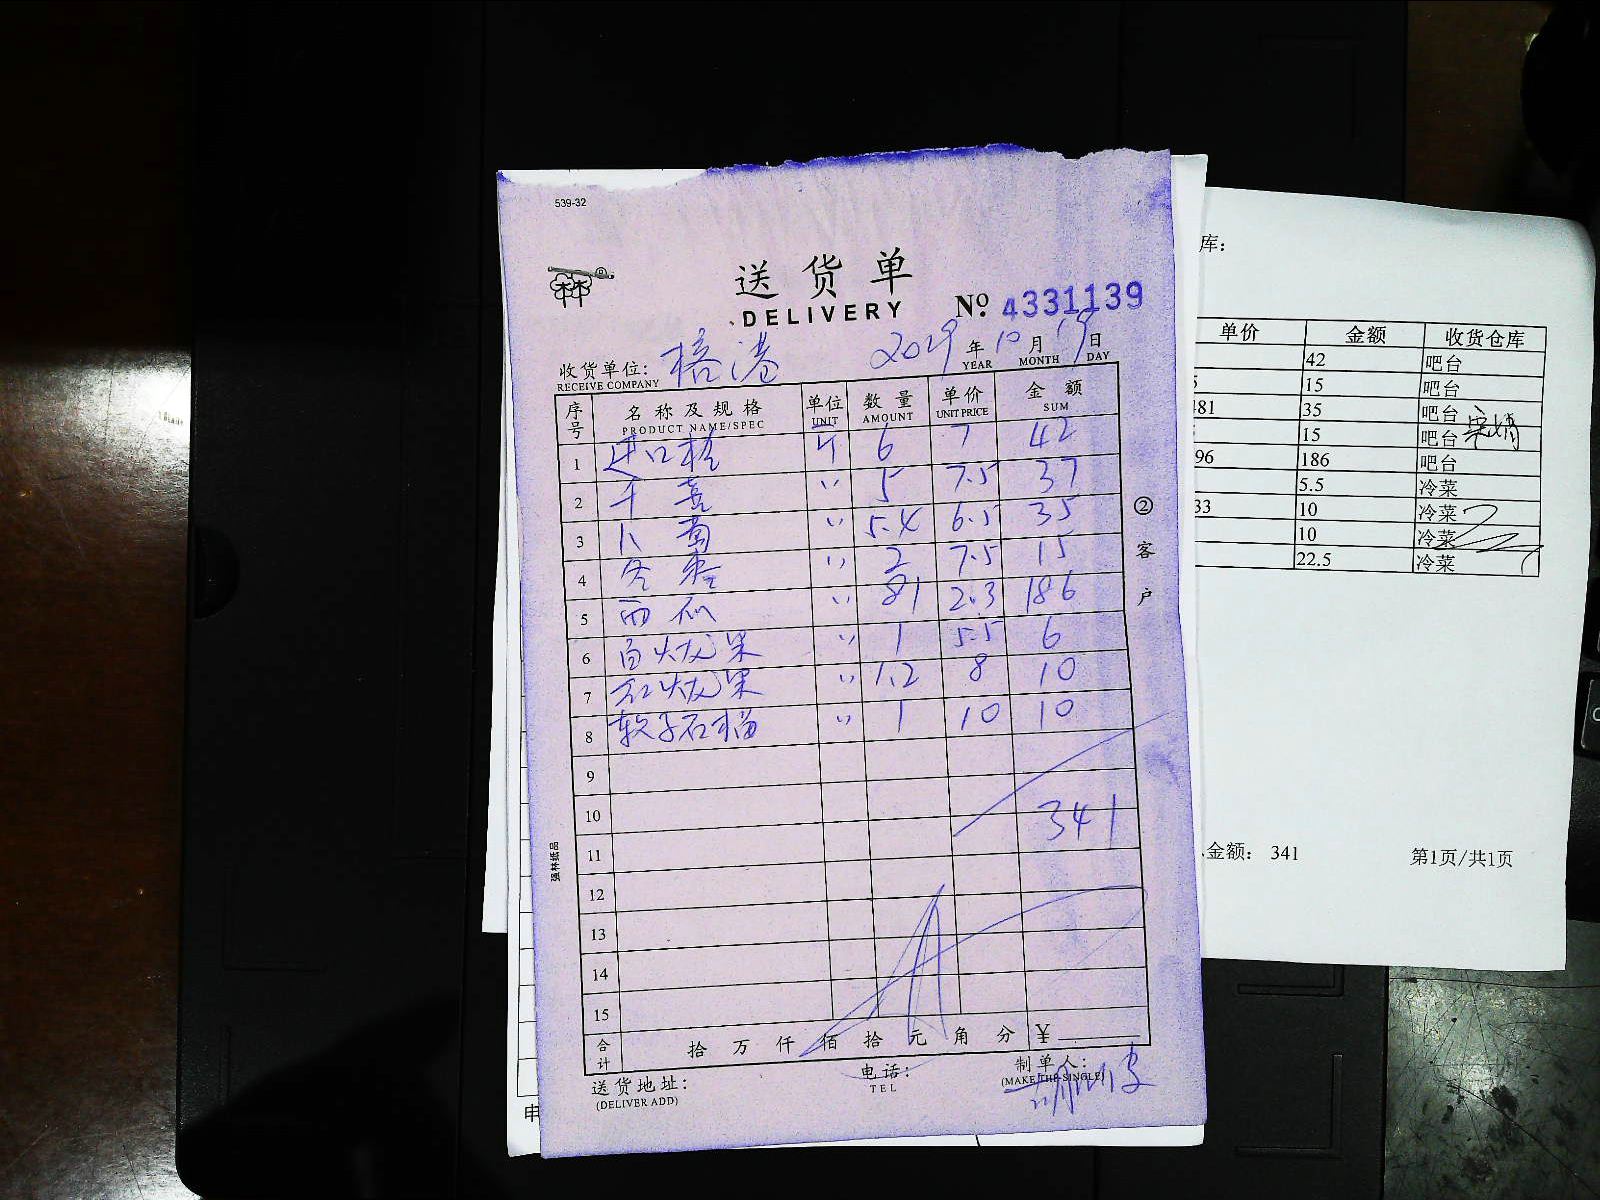 539-32
送货单
DELIVERY
№ 4331139
收货单位: 榕港 2019 年 10 月 19 日
RECEIVE COMPANY YEAR MONTH DAY
序号 名称及规格 单位 数量 单价 金额
PRODUCT NAME/SPEC UNIT AMOUNT UNIT PRICE SUM
1 进口橙 斤 6 7 42
2 千禧 〃 5 7.5 37
3 卜萄 〃 5.4 6.5 35
4 冬枣 〃 2 7.5 15
5 西瓜 〃 81 2.3 186
6 白火龙果 〃 1 5.5 6
7 红火龙果 〃 1.2 8 10
8 软子石榴 〃 1 10 10
9
10 341
11
12
13
14
15
合计 拾 万 仟 佰 拾 元 角 分 ¥
送货地址: 电话: 制单人:
(DELIVER ADD) TEL (MAKE THE SINGLE)
②客户
强林纸品
库:
单价 金额 收货仓库
42 吧台
15 吧台
481 35 吧台
15 吧台
96 186 吧台
5.5 冷菜
33 10 冷菜
10 冷菜
22.5 冷菜
金额: 341 第1页/共1页
申